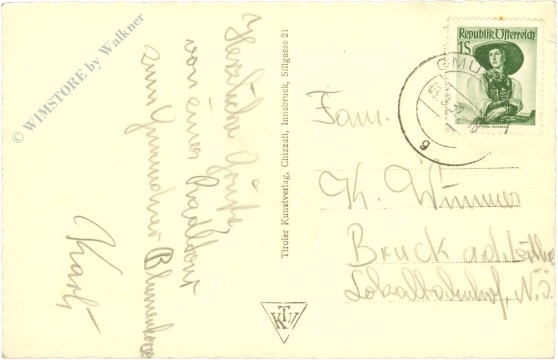 © WIMSTORE by Walkner
Herzliche Grüße
von einer Radltour
zum Gmundner
Karli
Tiroler Kunstverlag, Chizzali, Innsbruck, Sillgasse 21
KTV
Republik Österreich
1S
GMU
6
Fam.
K. Wimmer
Bruck a. d. Leitha
Lokalbahnhof, N. Ö.